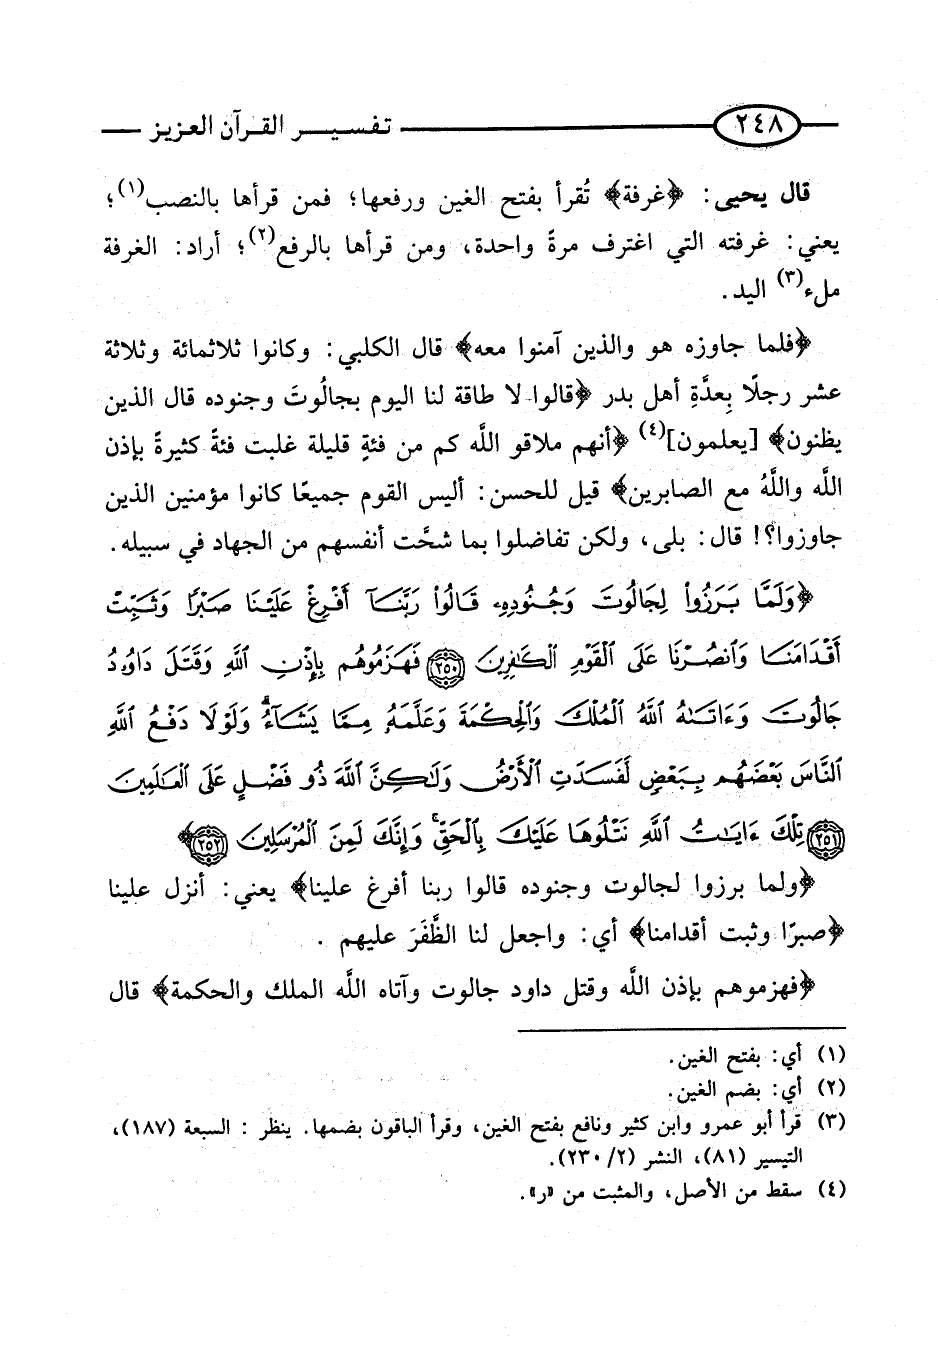 ٢٤٨ تفسير القرآن العزيز
قال يحيى: ﴿غرفة﴾ تُقرأ بفتح الغين ورفعها؛ فمن قرأها بالنصب(١)؛
يعني: غرفته التي اغترف مرةً واحدة، ومن قرأها بالرفع(٢)؛ أراد: الغرفة
ملء(٣) اليد.
﴿فلما جاوزه هو والذين آمنوا معه﴾ قال الكلبي: وكانوا ثلاثمائة وثلاثة
عشر رجلًا بِعدَّةِ أهل بدر ﴿قالوا لا طاقة لنا اليوم بجالُوتَ وجنوده قال الذين
يظنون﴾ [يعلمون](٤) ﴿أنهم ملاقو اللَّه كم من فئةٍ قليلة غلبت فئةً كثيرةً بإذن
اللَّه واللَّهُ مع الصابرين﴾ قيل للحسن: أليس القوم جميعًا كانوا مؤمنين الذين
جاوزوا؟! قال: بلى، ولكن تفاضلوا بما شحَّت أنفسهم من الجهاد في سبيله.
﴿وَلَمَّا بَرَزُوا۟ لِجَالُوتَ وَجُنُودِهِۦ قَالُوا۟ رَبَّنَآ أَفْرِغْ عَلَيْنَا صَبْرًا وَثَبِّتْ
أَقْدَامَنَا وَٱنصُرْنَا عَلَى ٱلْقَوْمِ ٱلْكَٰفِرِينَ ٢٥٠ فَهَزَمُوهُم بِإِذْنِ ٱللَّهِ وَقَتَلَ دَاوُۥدُ
جَالُوتَ وَءَاتَىٰهُ ٱللَّهُ ٱلْمُلْكَ وَٱلْحِكْمَةَ وَعَلَّمَهُۥ مِمَّا يَشَآءُ ۗ وَلَوْلَا دَفْعُ ٱللَّهِ
ٱلنَّاسَ بَعْضَهُم بِبَعْضٍ لَّفَسَدَتِ ٱلْأَرْضُ وَلَٰكِنَّ ٱللَّهَ ذُو فَضْلٍ عَلَى ٱلْعَٰلَمِينَ
٢٥١ تِلْكَ ءَايَٰتُ ٱللَّهِ نَتْلُوهَا عَلَيْكَ بِٱلْحَقِّ ۚ وَإِنَّكَ لَمِنَ ٱلْمُرْسَلِينَ ٢٥٢﴾
﴿ولما برزوا لجالوت وجنوده قالوا ربنا أفرغ علينا﴾ يعني: أنزل علينا
﴿صبرًا وثبت أقدامنا﴾ أي: واجعل لنا الظَّفَرَ عليهم .
﴿فهزموهم بإذن اللَّه وقتل داود جالوت وآتاه اللَّه الملك والحكمة﴾ قال
(١) أي: بفتح الغين.
(٢) أي: بضم الغين.
(٣) قرأ أبو عمرو وابن كثير ونافع بفتح الغين، وقرأ الباقون بضمها. ينظر : السبعة (١٨٧)،
التيسير (٨١)، النشر (٢/ ٢٣٠).
(٤) سقط من الأصل، والمثبت من «ر».